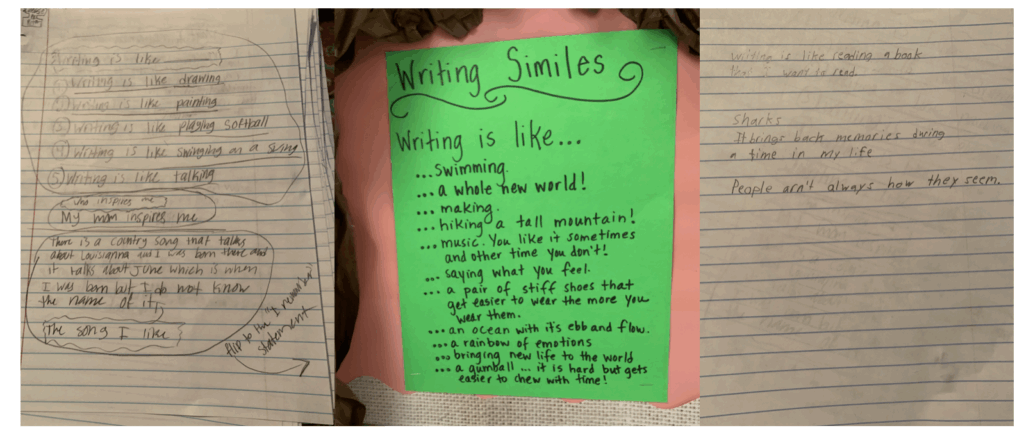 Writing is like
① Writing is like drawing
② Writing is like painting
③ Writing is like playing softball
④ Writing is like swinging on a swing
⑤ Writing is like talking
who inspires me
My mom inspires me
There is a country song that talks
about Louisianna and I was born there and
it talks about June which is when
I was born but I do not know
the name of it.
The song I like
flip to the "I remember"
statement
Writing Similes
Writing is like...
...swimming.
...a whole new world!
...making.
...hiking a tall mountain!
...music. You like it sometimes
and other time you don't!
...saying what you feel.
...a pair of stiff shoes that
get easier to wear the more you
wear them.
...an ocean with it's ebb and flow.
...a rainbow of emotions
...bringing new life to the world
...a gumball ... it is hard but gets
easier to chew with time!
Writing is like reading a book
that I want to read.
Sharks
It brings back memories during
a time in my life
People arn't always how they seem.